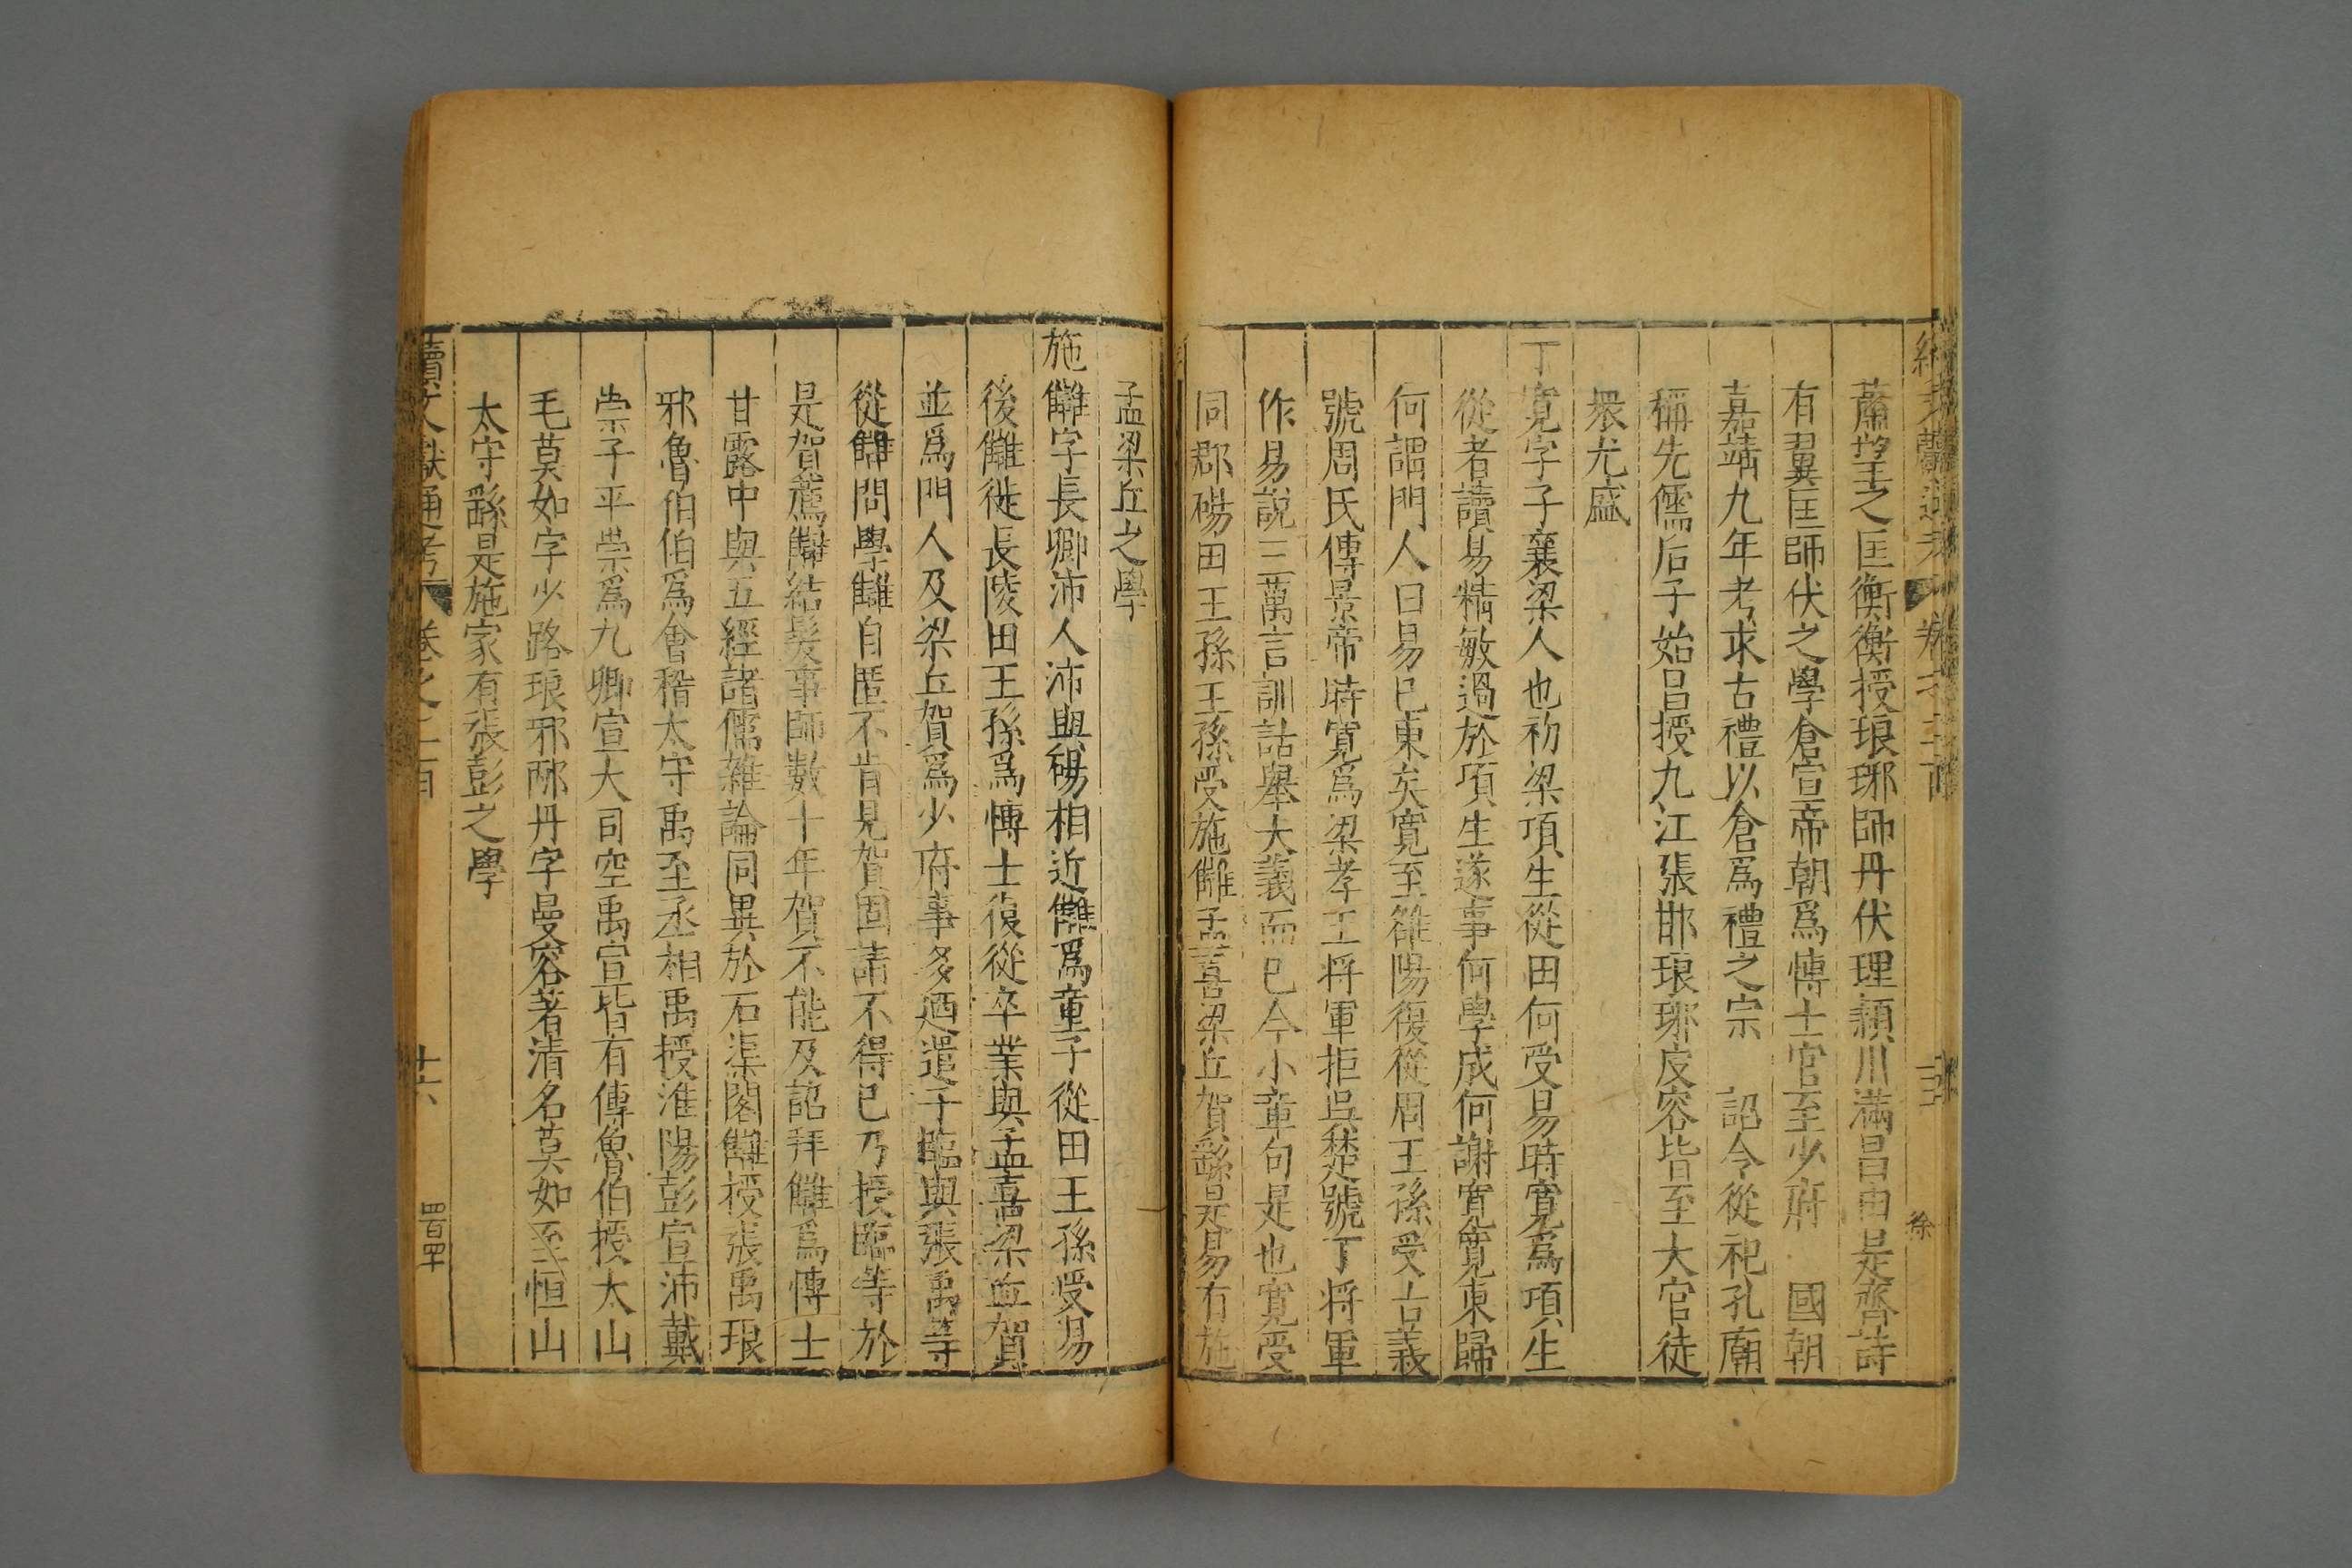 蕭望之匡衡衡授琅琊師丹伏理潁川滿昌由是齊詩
有翼匡師伏之學倉宣帝朝爲博士官至少府 國朝
嘉靖九年考求古禮以倉爲禮之宗 詔令從祀孔廟
稱先儒后子始昌授九江張邯琅琊皮容皆至大官徒
衆尤盛
丁寬字子襄梁人也初梁項生從田何受易時寬爲項生
從者讀易精敏過於項生遂事何學成何謝寬寬東歸
何謂門人曰易已東矣寬至雒陽復從周王孫受古義
號周氏傳景帝時寬爲梁孝王將軍拒吳楚號丁將軍
作易說三萬言訓詁舉大義而已今小章句是也寬受
同郡碭田王孫王孫受施讎孟喜梁丘賀繇是易有施
孟梁丘之學
施讎字長卿沛人沛與碭相近讎爲童子從田王孫受易
後讎徙長陵田王孫爲博士復從卒業與孟喜梁丘賀
並爲門人及梁丘賀爲少府事多廼遣子臨與張禹等
從讎問學讎自匿不肯見賀固請不得已乃授臨等於
是賀薦讎結髮事師數十年賀不能及詔拜讎爲博士
甘露中與五經諸儒雜論同異於石渠閣讎授張禹琅
邪魯伯伯爲會稽太守禹至丞相禹授淮陽彭宣沛戴
崇子平崇爲九卿宣大司空禹宣皆有傳魯伯授太山
毛莫如字少路琅邪邴丹字曼容著清名莫如至恒山
太守繇是施家有張彭之學
續文獻通考 卷之二百 十六 四百四